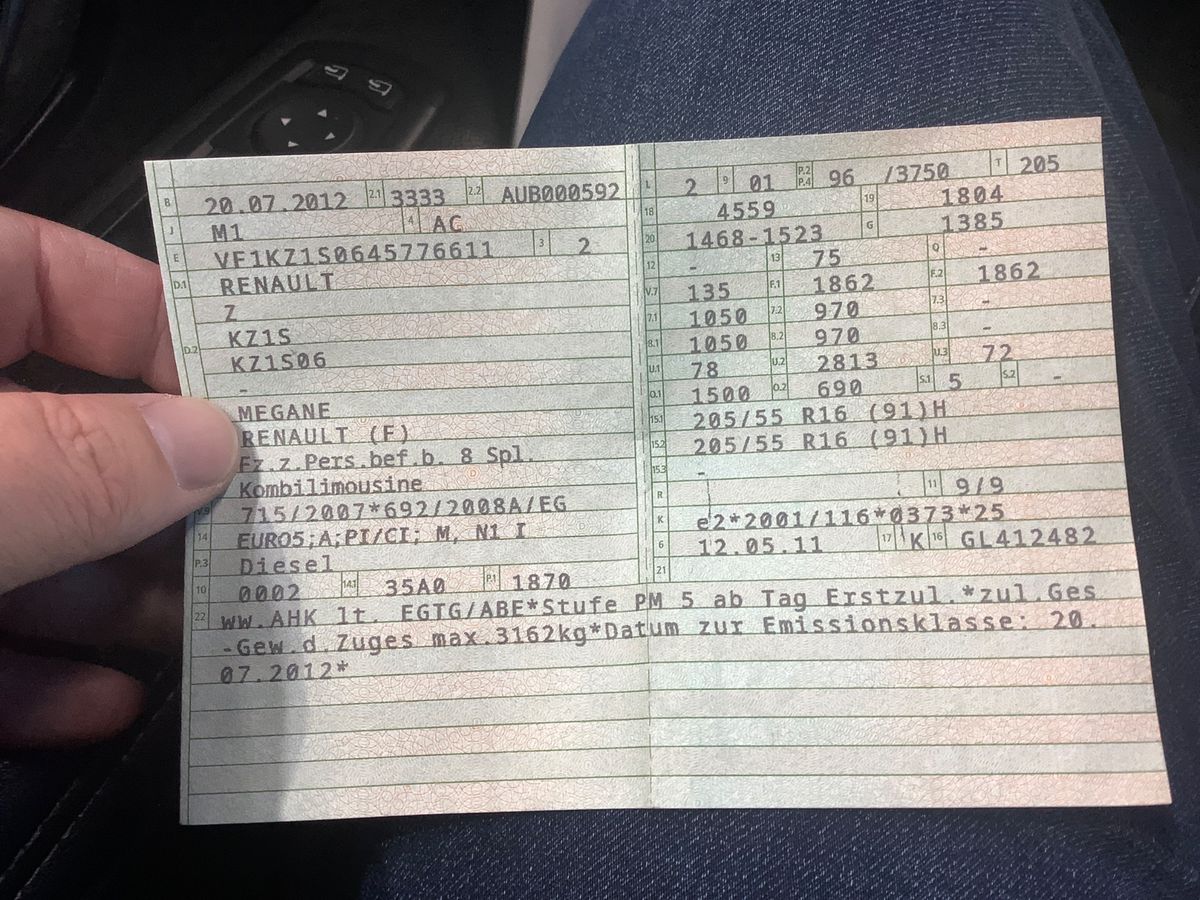 B 20.07.2012 2.1 3333 2.2 AUB000592
J M1 4 AC
E VF1KZ1S0645776611 3 2
D.1 RENAULT
Z
D.2 KZ1S
KZ1S06
-
MEGANE
RENAULT (F)
Fz.z.Pers.bef.b. 8 Spl.
Kombilimousine
V.9 715/2007*692/2008A/EG
14 EURO5;A;PI/CI; M, N1 I
P.3 Diesel
10 0002 14.1 35A0 P.1 1870
L 2 9 01 P.2 P.4 96 /3750 T 205
18 4559 19 1804
20 1468-1523 G 1385
12 - 13 75 Q -
V.7 135 F.1 1862 F.2 1862
7.1 1050 7.2 970 7.3 -
8.1 1050 8.2 970 8.3 -
U.1 78 U.2 2813 U.3 72
O.1 1500 O.2 690 S.1 5 S.2 -
15.1 205/55 R16 (91)H
15.2 205/55 R16 (91)H
15.3 -
R 11 9/9
K e2*2001/116*0373*25
6 12.05.11 17 K 16 GL412482
21
22 ww.AHK lt. EGTG/ABE*Stufe PM 5 ab Tag Erstzul.*zul.Ges
-Gew.d.Zuges max.3162kg*Datum zur Emissionsklasse: 20.
07.2012*